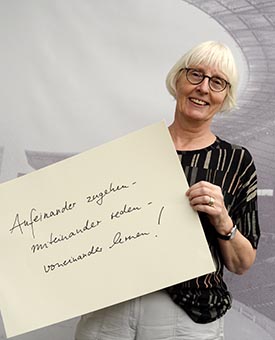 Aufeinander zugehen -
miteinander reden -
voneinander lernen!